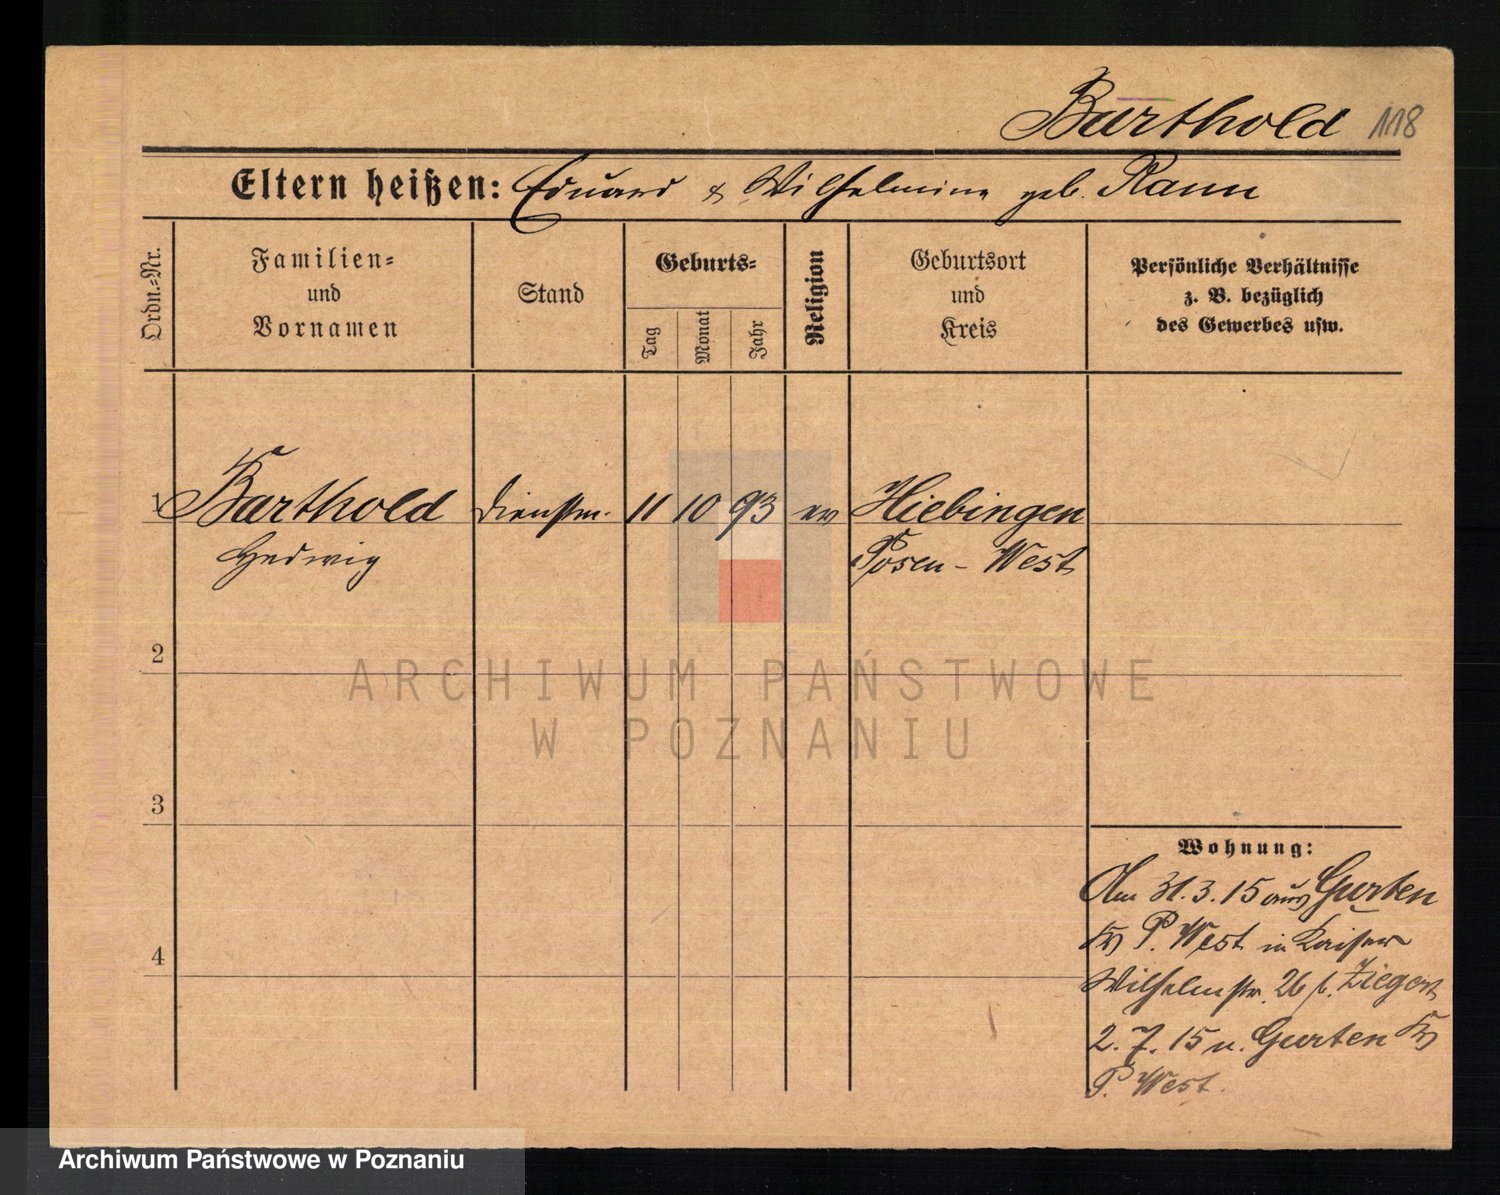 Barthold 118
Eltern heißen: Eduard & Wilhelmine geb. Rann
Ordn.-Nr.
Familien-
und
Vornamen
Stand
Geburts-
Tag
Monat
Jahr
Religion
Geburtsort
und
Kreis
Persönliche Verhältnisse
z. B. bezüglich
des Gewerbes usw.
1 Barthold Dienstm. 11 10 93 ev Hiebingen
Hedwig Posen - West
2
3
4
Wohnung:
Am 31.3.15 aus Gurten
Kr P. West in Kaiser
Wilhelmstr. 26 b. Ziegert
2.7.15 n. Gurten Kr
P. West.
ARCHIWUM PAŃSTWOWE
W POZNANIU
Archiwum Państwowe w Poznaniu